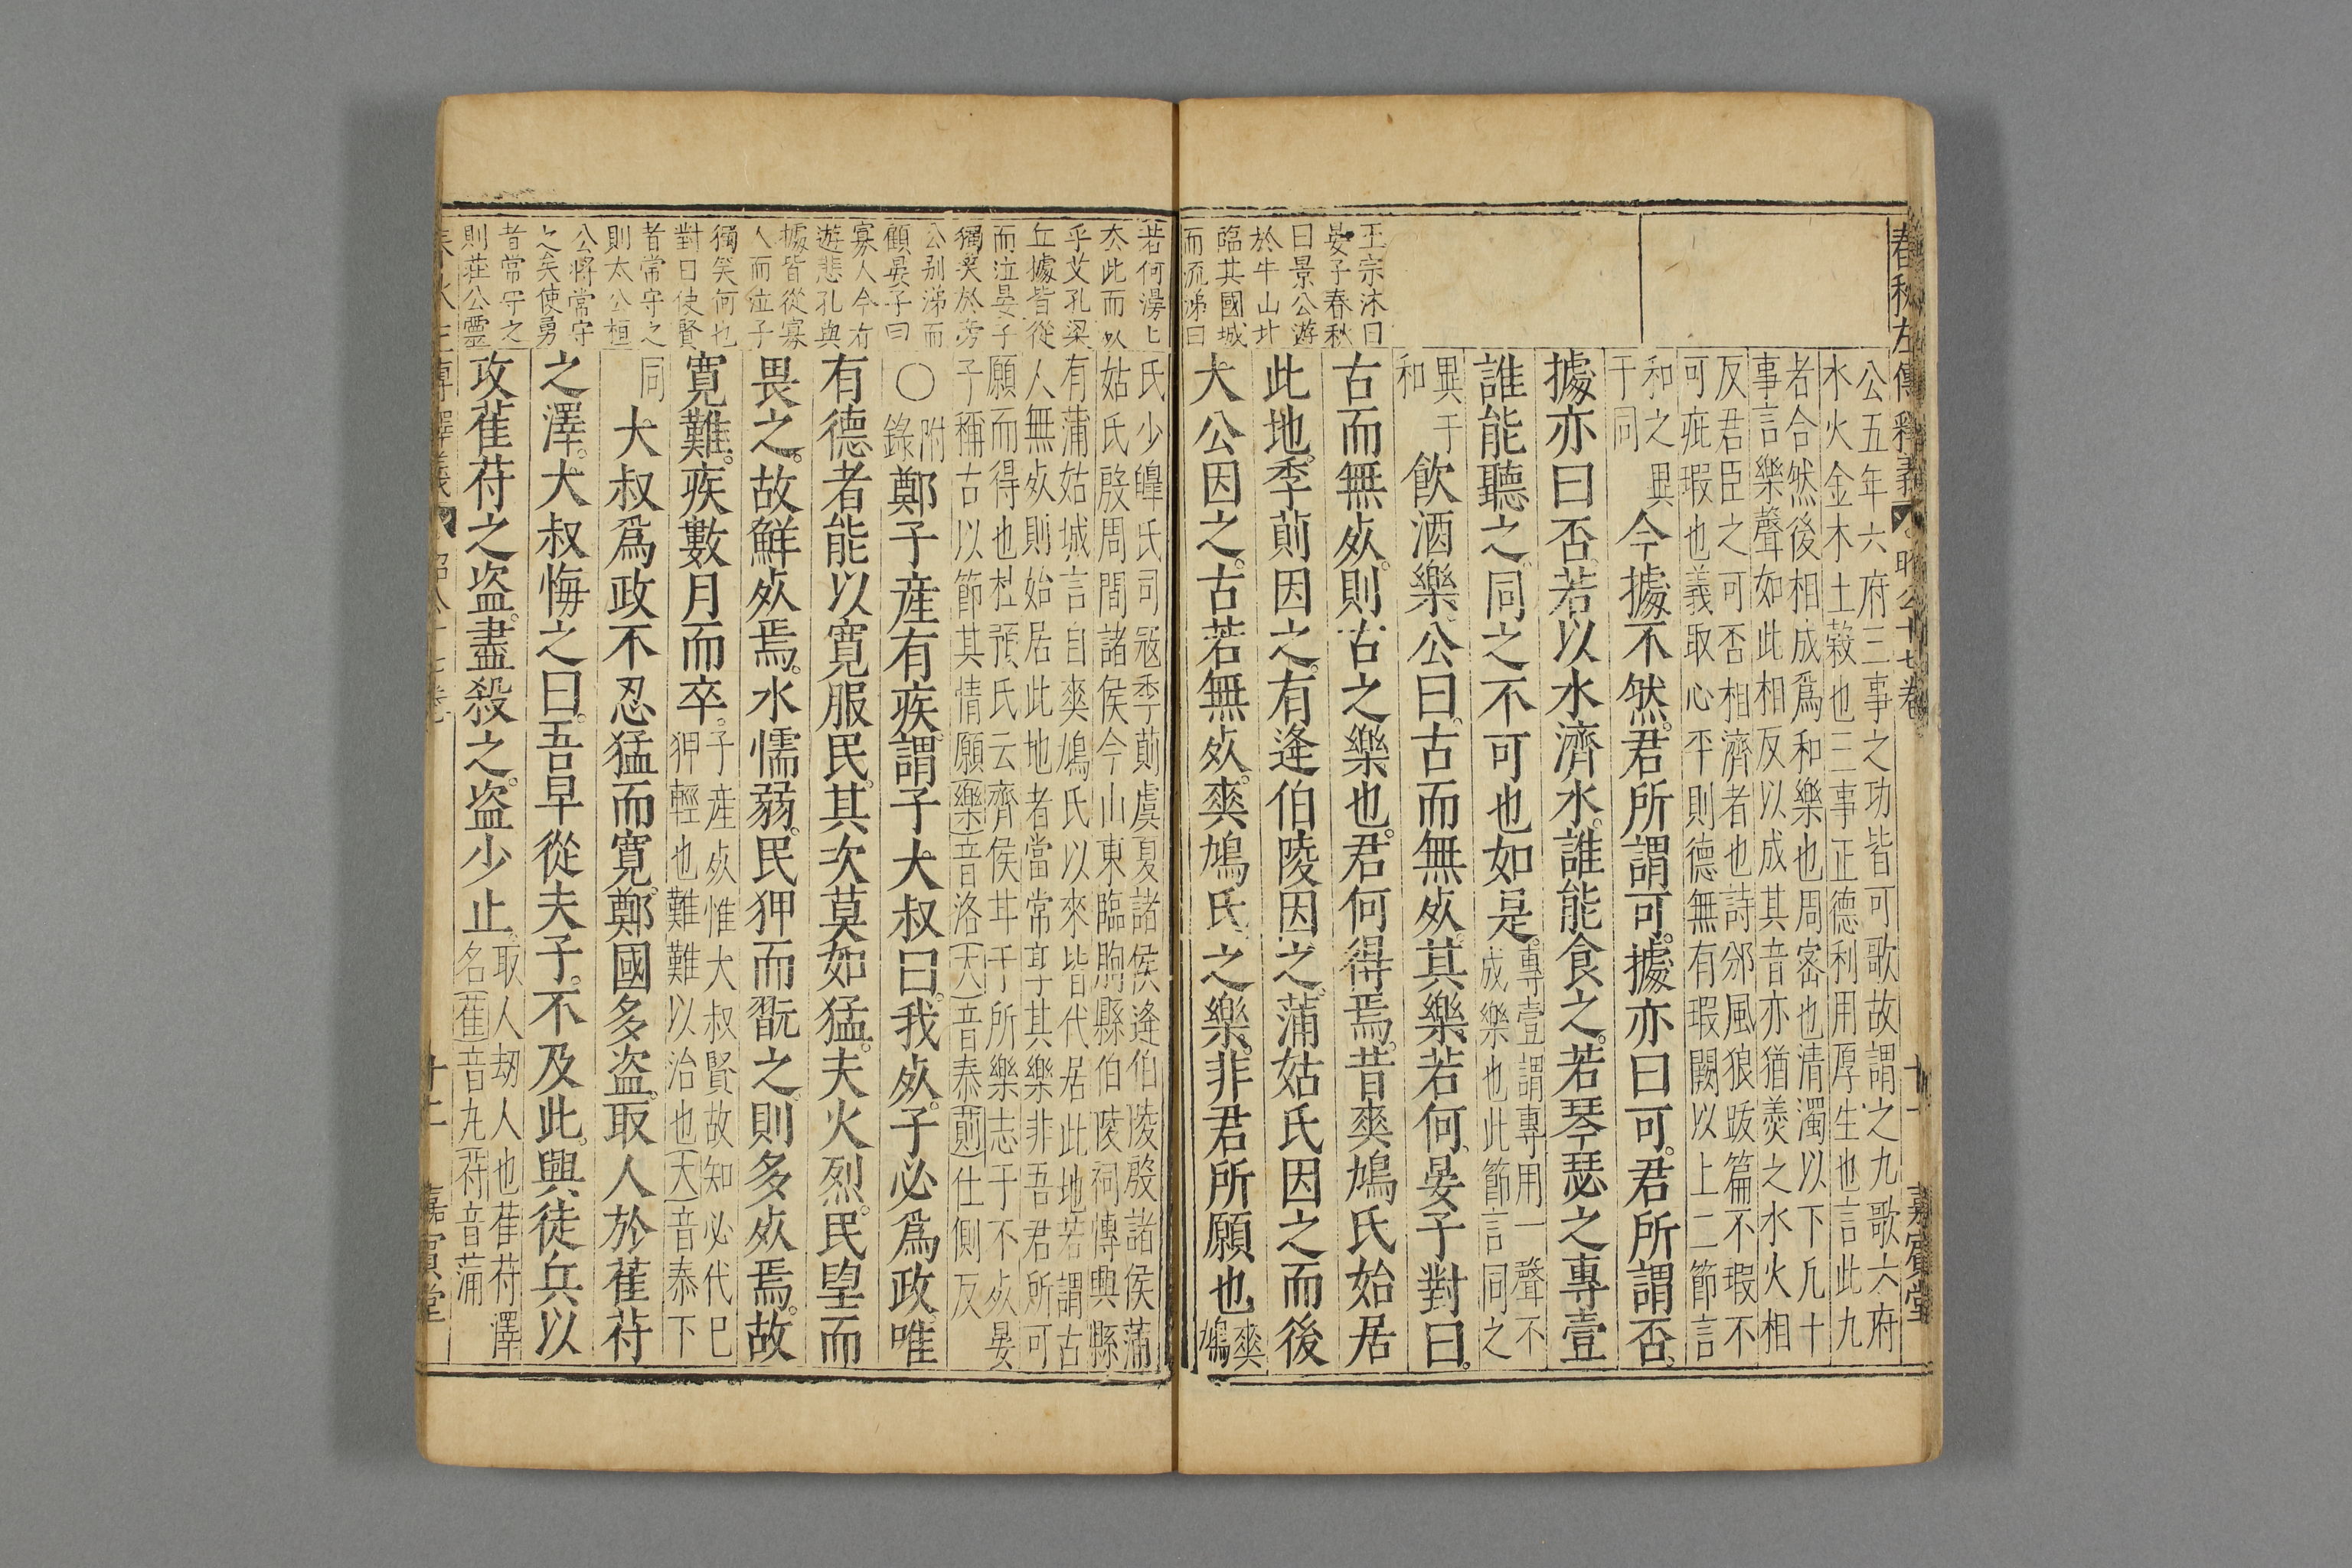 春秋左傳釋義 昭公十七卷 十一 嘉賓堂
王宗沐曰
晏子春秋
曰景公遊
於牛山北
臨其國城
而流涕曰
公五年六府三事之功皆可歌故謂之九歌六府
水火金木土穀也三事正德利用厚生也言此九
者合然後相成爲和樂也周宻也清濁以下凡十
事言樂聲如此相反以成其音亦猶羹之水火相
反君臣之可否相濟者也詩邠風狼跋篇不瑕不
可疵瑕也義取心平則德無有瑕闕以上二節言
和之異
于同
今據不然。君所謂可。據亦曰可。君所謂否。
據亦曰否。若以水濟水。誰能食之。若琴瑟之專壹
誰能聽之。同之不可也如是。
專壹謂專用一聲不
成樂也此節言同之
異于
和
飲酒樂。公曰。古而無㱙。其樂若何。晏子對曰。
古而無㱙。則古之樂也。君何得焉。昔爽鳩氏始居
此地。季萴因之。有逄伯陵因之。蒲姑氏因之而後
大公因之。古若無㱙。爽鳩氏之樂。非君所願也
爽
鳩
若何滂滂
去此而㱙
乎艾孔梁
丘據皆從
而泣晏子
獨笑於旁
公刷涕而
顧晏子曰
寡人今方
遊悲孔與
據皆從寡
人而泣子
獨笑何也
對曰使賢
者常守之
則太公桓
公將常守
之矣使勇
者常守之
則莊公靈
氏少皥氏司寇季萴虞夏諸侯逄伯陵殷諸侯蒲
姑氏殷周間諸侯今山東臨朐縣伯陵祠博興縣
有蒲姑城言自爽鳩氏以來皆代居此地若謂古
人無㱙則始居此地者當常享其樂非吾君所可
願而得也杜預氏云齊侯甘于所樂志于不㱙晏
子稱古以節其情願樂音洛大音泰萴仕側反
○附
錄
鄭子産有疾。謂子大叔曰。我㱙。子必爲政。唯
有德者能以寬服民。其次莫如猛。夫火烈。民望而
畏之。故鮮㱙焉。水懦弱。民狎而翫之。則多㱙焉。故
寬難。疾數月而卒。
子産㱙惟大叔賢故知必代已
狎輕也難難以治也大音泰下
同
大叔爲政不忍猛而寬。鄭國多盗。取人於萑苻
之澤。大叔悔之曰。吾早從夫子。不及此。興徒兵以
攻萑苻之盗。盡殺之。盗少止。
取人刼人也萑苻澤
名萑音丸苻音蒲
十二 嘉賓堂